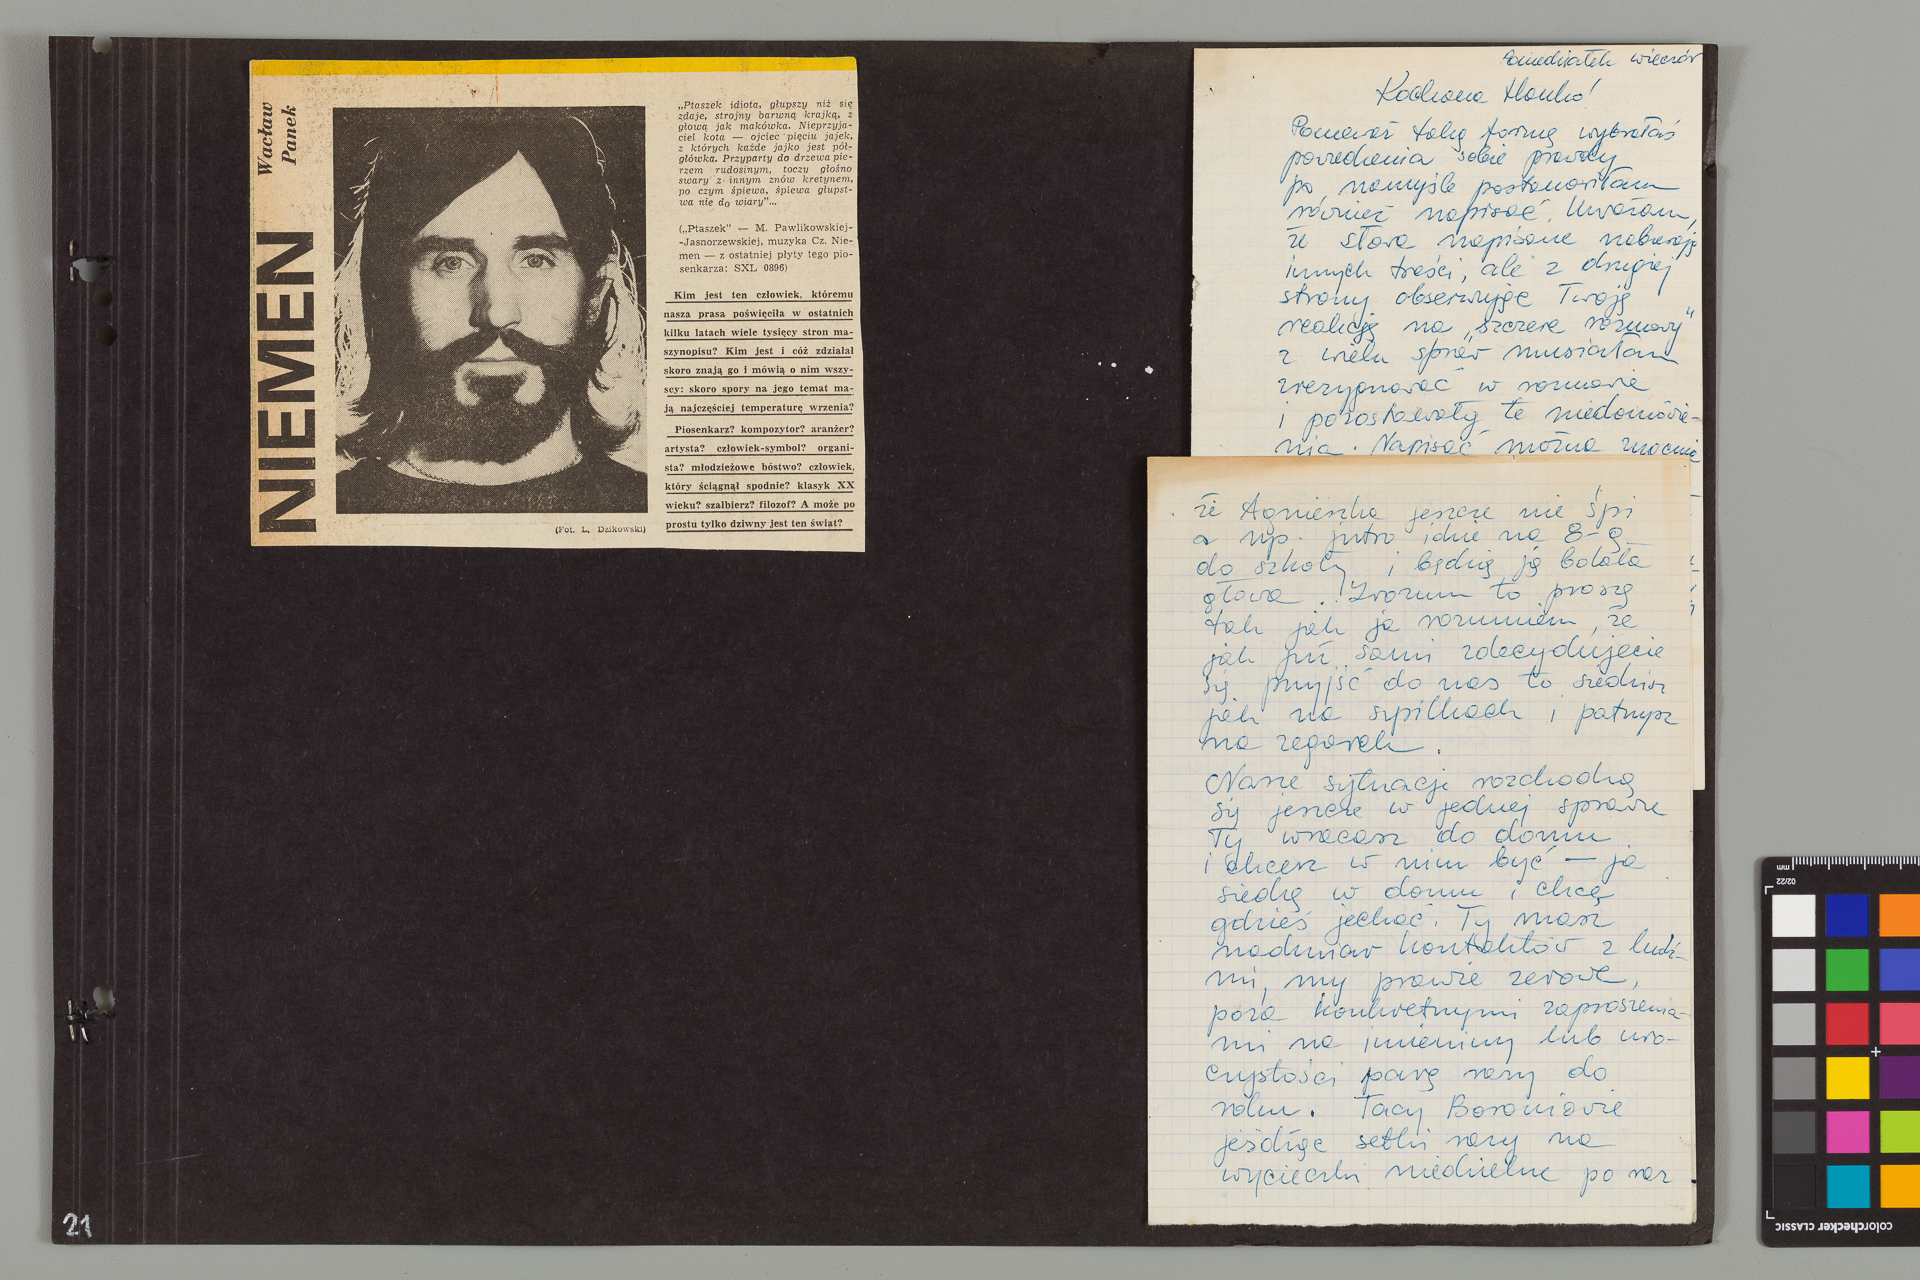 Wacław
Panek
NIEMEN
„Ptaszek idiota, głupszy niż się
zdaje, strojny barwną krajką, z
głową jak makówka. Nieprzyja-
ciel kota — ojciec pięciu jajek,
z których każde jajko jest pół-
główka. Przyparty do drzewa pie-
rzem rudosinym, toczy głośno
swary z innym znów kretynem,
po czym śpiewa, śpiewa głupst-
wa nie do wiary"...
(„Ptaszek" — M. Pawlikowskiej-
-Jasnorzewskiej, muzyka Cz. Nie-
men — z ostatniej płyty tego pio-
senkarza: SXL 0896)
Kim jest ten człowiek, któremu
nasza prasa poświęciła w ostatnich
kilku latach wiele tysięcy stron ma-
szynopisu? Kim jest i cóż zdziałał
skoro znają go i mówią o nim wszy-
scy: skoro spory na jego temat ma-
ją najczęściej temperaturę wrzenia?
Piosenkarz? kompozytor? aranżer?
artysta? człowiek-symbol? organi-
sta? młodzieżowe bóstwo? człowiek,
który ściągnął spodnie? klasyk XX
wieku? szalbierz? filozof? A może po
prostu tylko dziwny jest ten świat?
(Fot. L. Dzikowski)
Poniedziałek wieczór
Kochana Hanko!
Ponieważ taką formę wybrałaś
powiedzenia sobie prawdy
po namyśle postanowiłam
również napisać. Uważam,
że słowa napisane nabierają
innych treści, ale z drugiej
strony obserwując Twoją
reakcję na „szczere rozmowy"
z wielu spraw musiałam
zrezygnować w rozmowie
i pozostawały te niedomówie-
nia. Napisać można
że Agnieszka jeszcze nie śpi
a np. jutro idzie na 8-ą
do szkoły i będzie ją bolała
głowa. Zrozum to proszę
tak jak ja rozumiem, że
jak już sami zdecydujecie
się przyjść do nas to siedzisz
jak na szpilkach i patrzysz
na zegarek.
Nasze sytuacje rozchodzą
się jeszcze w jednej sprawie
Ty wracasz do domu
i chcesz w nim być — ja
siedzę w domu i chcę
gdzieś jechać. Ty masz
nadmiar kontaktów z ludź-
mi, my prawie zerowe,
poza konkretnymi zaproszenia-
mi na imieniny lub uro-
czystości parę razy do
roku. Tacy Baraniowie
jeżdżąc setki razy na
wycieczki niedzielne po raz
21
mm
02/22
colorchecker CLASSIC